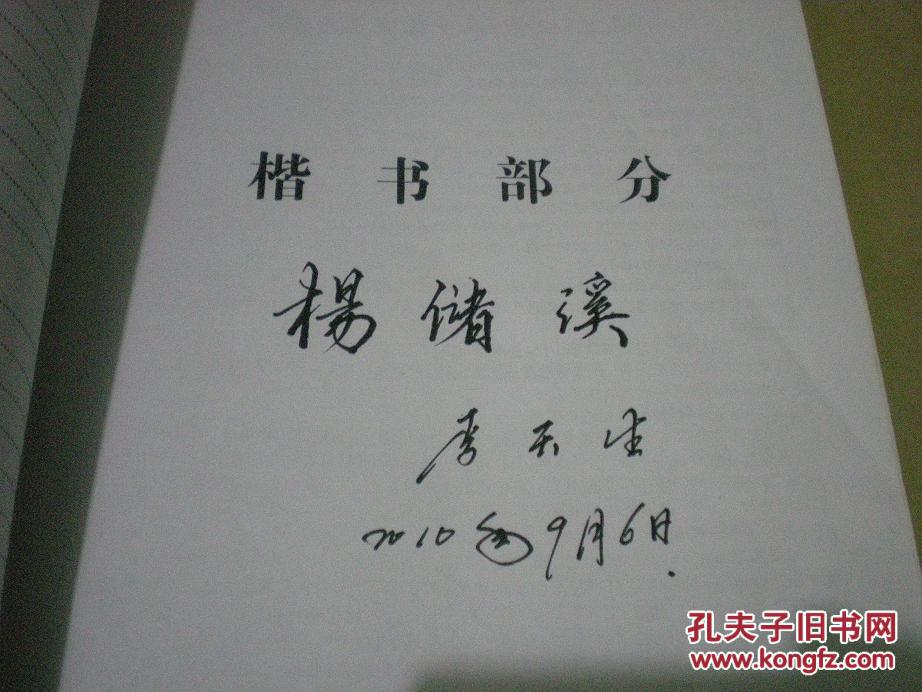 楷书部分
楊储溪
李天生
2010年9月6日.
孔夫子旧书网
www.kongfz.com